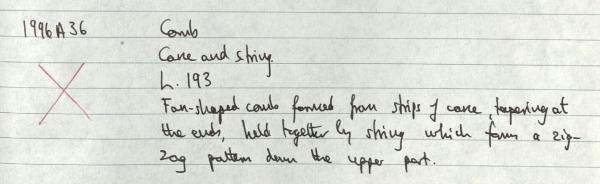 1996 A 36 Comb
Cane and string.
L. 193
Fan-shaped comb formed from strips of cane, tapering at
the ends, held together by string which forms a zig-
zag pattern down the upper part.